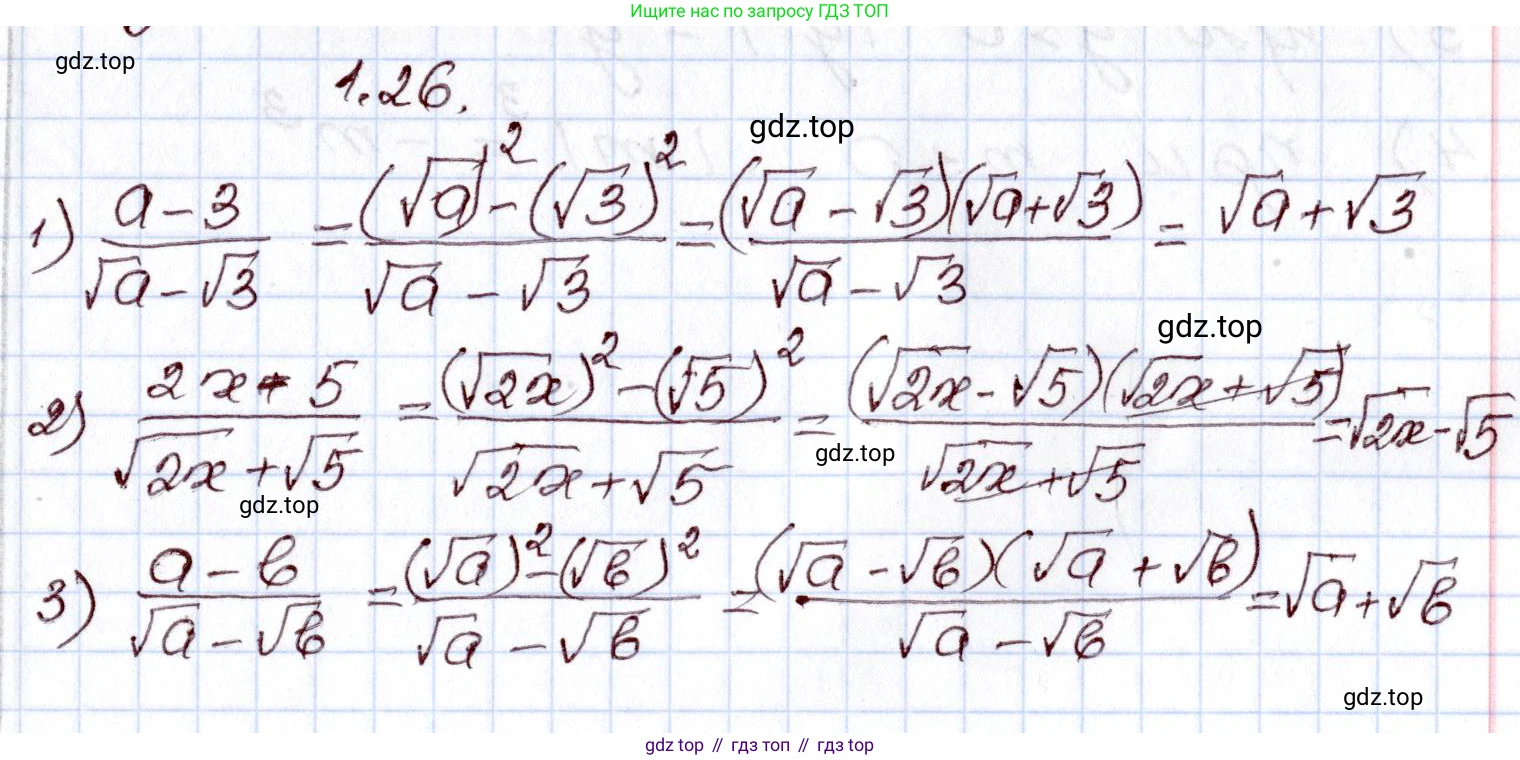 Ищите нас по запросу ГДЗ ТОП
gdz.top
1.26.
gdz.top
1) (a - 3)/(√a - √3) = ((√a)² - (√3)²)/(√a - √3) = ((√a - √3)(√a + √3))/(√a - √3) = √a + √3
gdz.top
2) (2x - 5)/(√2x + √5) = ((√2x)² - (√5)²)/(√2x + √5) = ((√2x - √5)(√2x + √5))/(√2x + √5) = √2x - √5
gdz.top
gdz.top
3) (a - b)/(√a - √b) = ((√a)² - (√b)²)/(√a - √b) = ((√a - √b)(√a + √b))/(√a - √b) = √a + √b
gdz.top
gdz top // гдз топ // гдз top